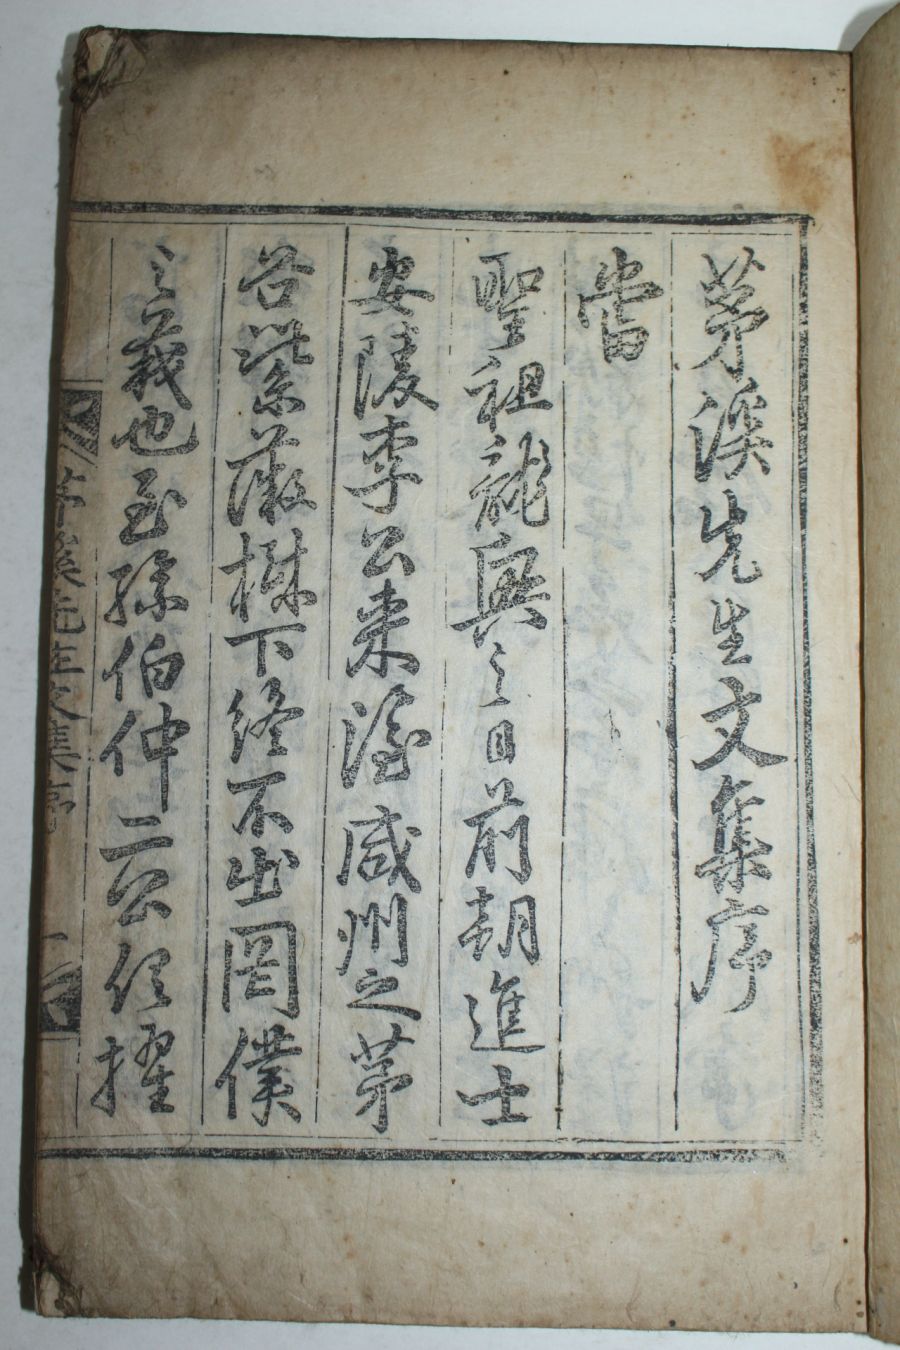 茅溪先生文集序
當
聖祖龍興之日前朝進士
安陵李公来隱咸州之茅
谷紫薇樹下終不出罔僕
之義也至孫伯仲二公俱擢
茅溪先生文集序 一